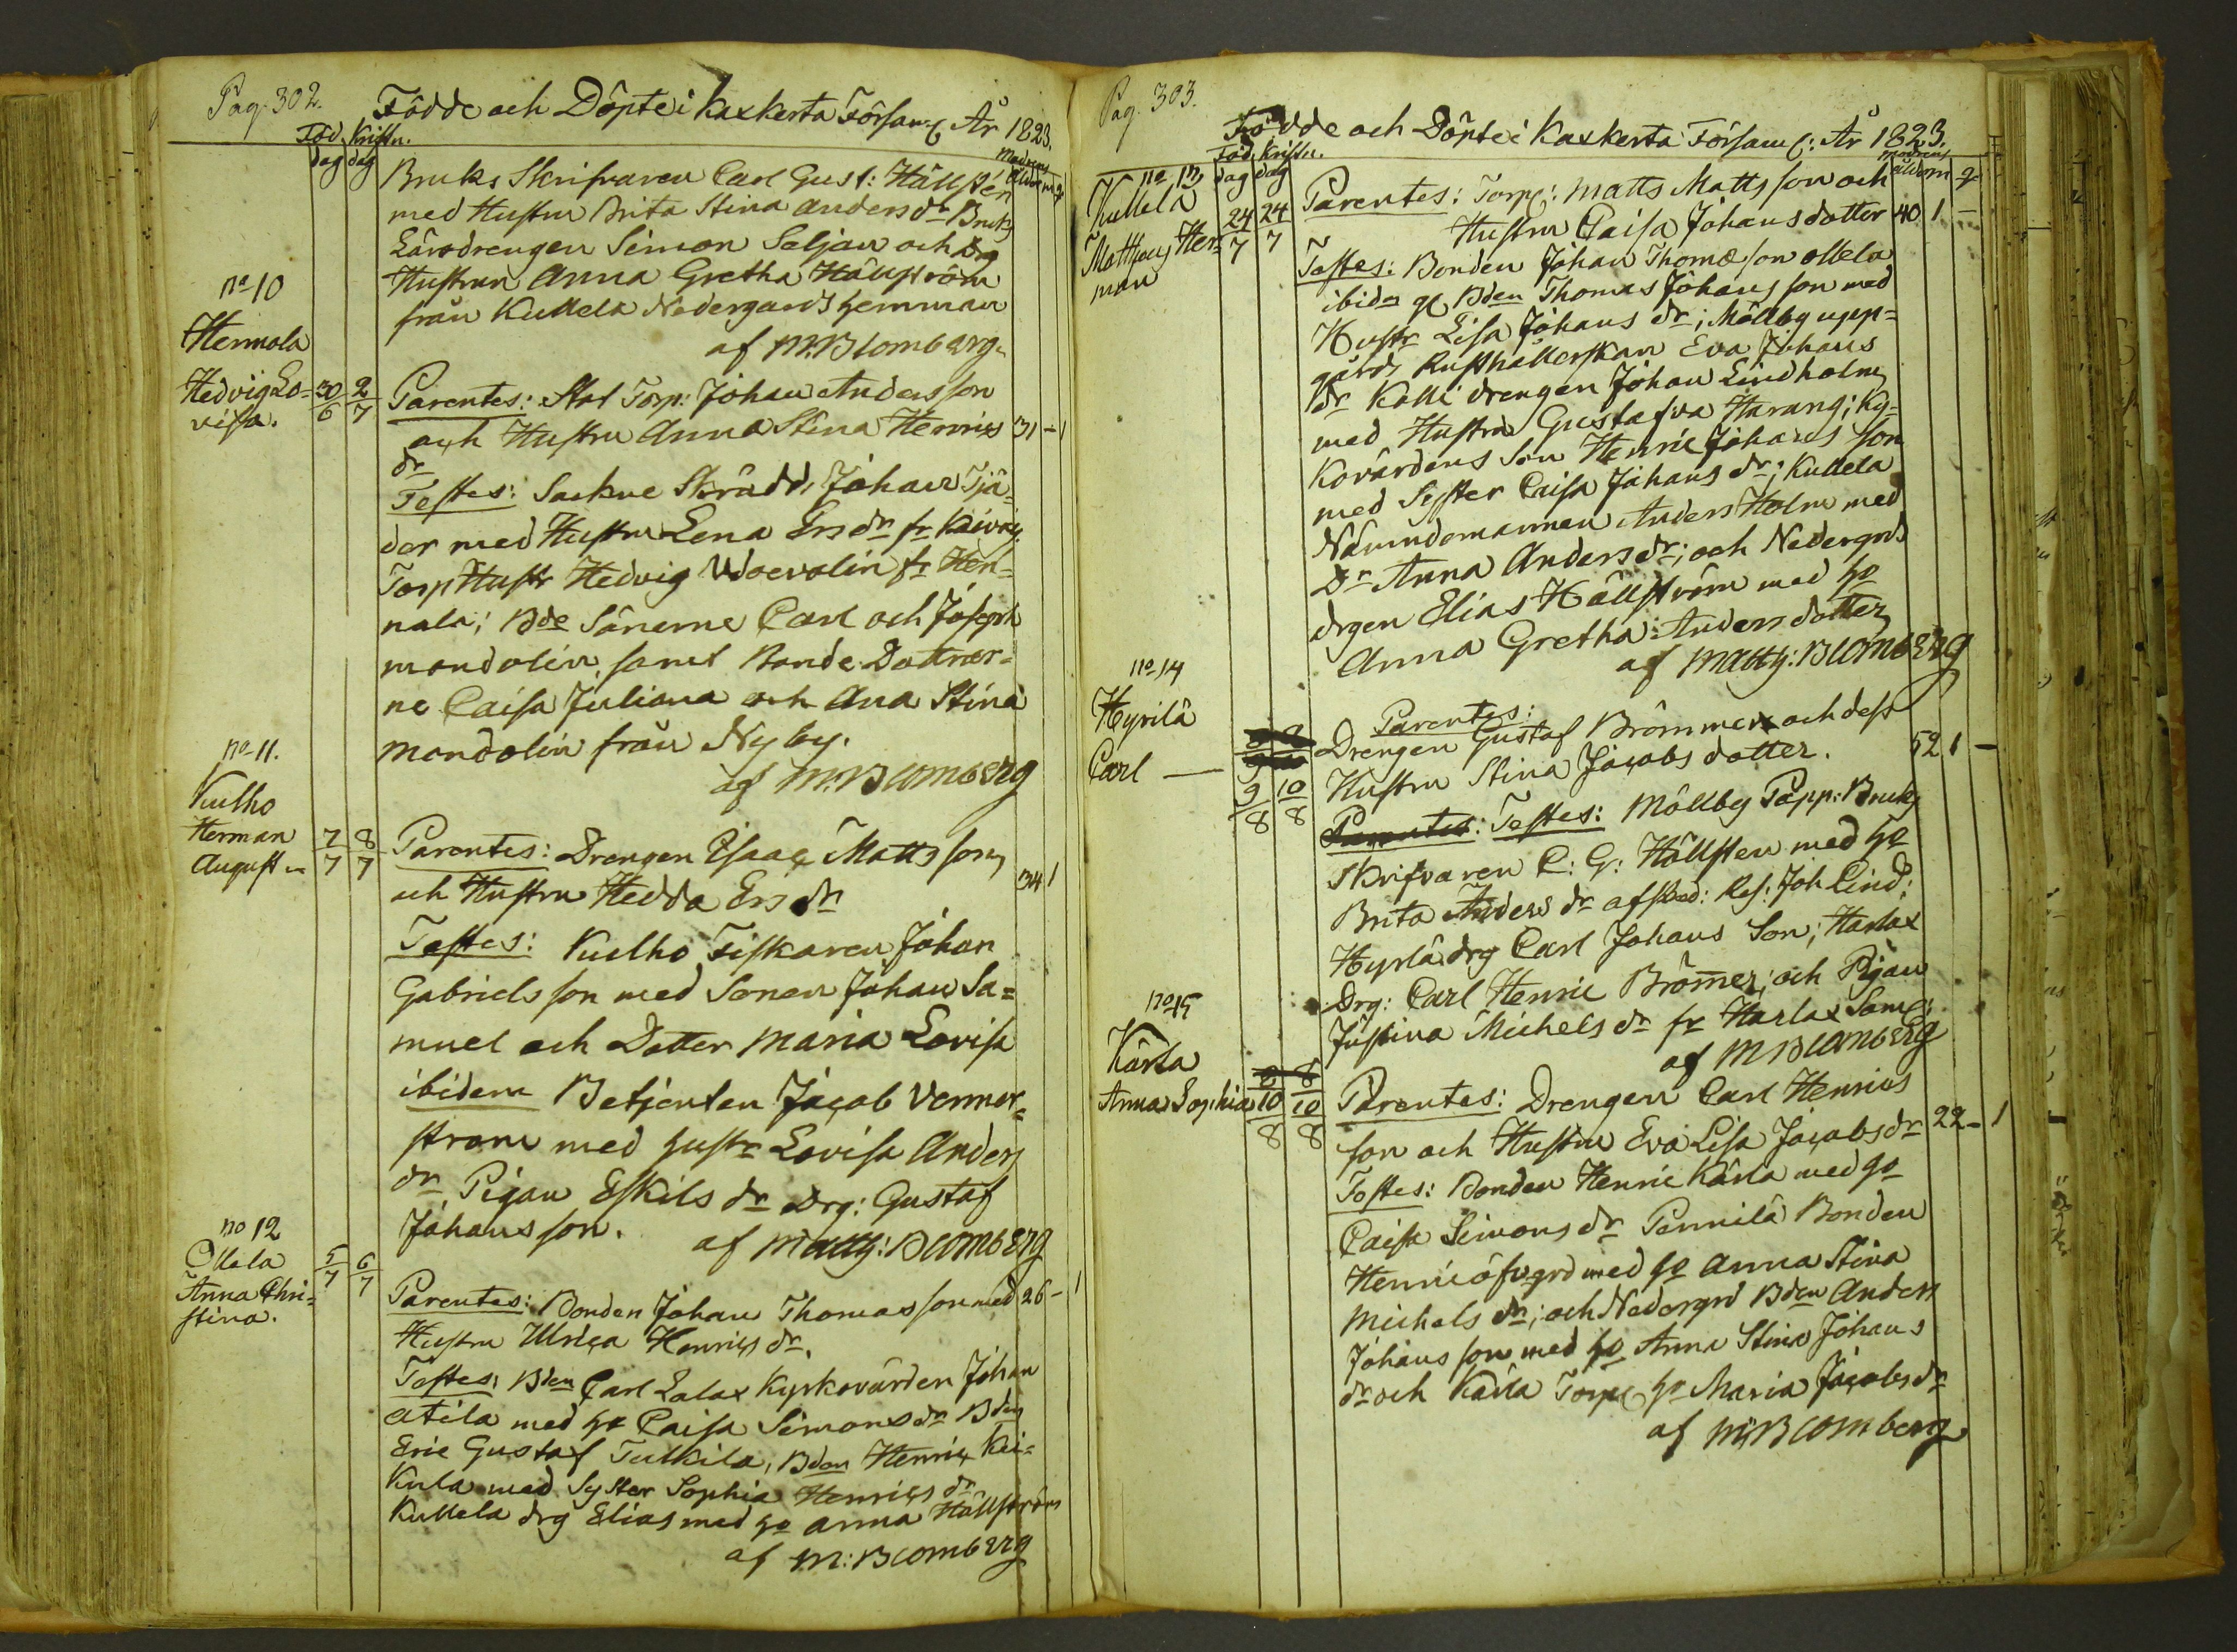 Pag. 302.
Födde och Döpte i Kaxkerta Församl. År 1823.
Föd. Kristn.
dag dag
Modrens
ålder m q
Bruks Skrifvaren Carl Gust: Hällstén
med Hustru Brita Stina Anders dr Bruks
Lärodrengen Simon Seljan och drg
Hustrun Anna Gretha Hällström
från Kullela Nedergårds hemman
af M. Blomberg
no 10
Hennala
Hedvig Lo=
visa.
30/6 2/7
Parentes: Stat Torp: Johan Andersson
och Hustru Anna Stina Henrics 31 - 1
dr
Testes: Sockne Skrädd: Johan Tjä=
der med Hustru Lena Ers dr fr
Torp Hustr Hedvig fr Hen=
nala; Bde Sönerne Carl och Joseph
Mondolin samt Bonde Dottrar=
ne Caisa Juliana och Ana Stina
Mondolin från Nyby.
af M. Blomberg
no 11.
Kulho
Herman
August
7/7 8/7
Parentes: Drengen Isaac Mattsson
och Hustru Hedda Ers dr 34 1
Testes: Kulho Fiskaren Johan
Gabrielsson med Sonen Johan Sa=
muel och Dotter Maria Lovisa
ibidem Betjenten Jacob Venner=
strom med hustr Lovisa Anders
dr, Pigan Eskils dr Drg: Gustaf
Johansson. af Matts: Blomberg
no 12
Ollela
Anna Chri=
stina.
5/7 6/7
Parentes: Bonden Johan Thomasson med 26 - 1
Hustru Ulrica Henrics dr.
Testes: Bden Carl Lalax Kyrkovärden Johan
Atila med ho Caisa Simons dr Bden
Eric Gustaf Tulkila, Bden Henric Kei=
kula med Syster Sophia Henrics dr
Kullela drg Elias med ho Anna Hällström
af M: Blomberg
Pag. 303.
Födde och Döpte i Kaxkerta Församl: År 1823.
Föd. Kristn.
dag dag
Modrens
ålder m q
no 13
Kullela
Matthias Her=
man
24/7 24/7
Parentes: Torp: Matts Matts son och
Hustru Caisa Johans dotter 40 1 -
Testes: Bonden Johan Thomæ son Ollela
ibidem Bden Thomas Johans son med
Hustr Lisa Johans dr; Möllby upp=
gårds Rusthållerskan Eva Johans
dr Kalli drengen Johan Lindholm
med Hustru Gustafva Harang; Ky=
kovärdens Son Henric Johans son
med Syster Caisa Johans dr; Kullela
Nämndemannen Anders Holm med
Dr Anna Anders dr; och Nedergrds
drgen Elias Hällström med ho
Anna Gretha Anders dotter
af Matts: Blomberg
no 14
Hyrilä
Carl
9/8 10/8
Parentes:
Drengen Gustaf Brömmer och dess
Hustru Stina Jacobs dotter. 52 1 -
Parentes: Testes: Möllby Papp: Bruks
Skrifvaren C: G: Hällsten med ho
Brita Anders dr afsked: Ref: Joh Lind:
Hyrlä drg Carl Johans Son; Harlax
Drg: Carl Henric Brömer; och Pigan
Justina Michels dr fr Harlax Saml:
af M Blomberg
no 15
Kärla
Anna Sophia
10/8 10/8
Parentes: Drengen Carl Henrics
son och Hustru Eva Lisa Jacobs dr 22 - 1
Testes: Bonden Henric Kärla med ho
Caisa Simons dr Pennilä Bonden
Henric öfvegrd med ho Anna Stina
Michels dr; och Nedergrd Bden Anders
Johans son med ho Anna Stina Johans
dr och Kärla Torp ho Maria Jacobs dr
af M: Blomberg